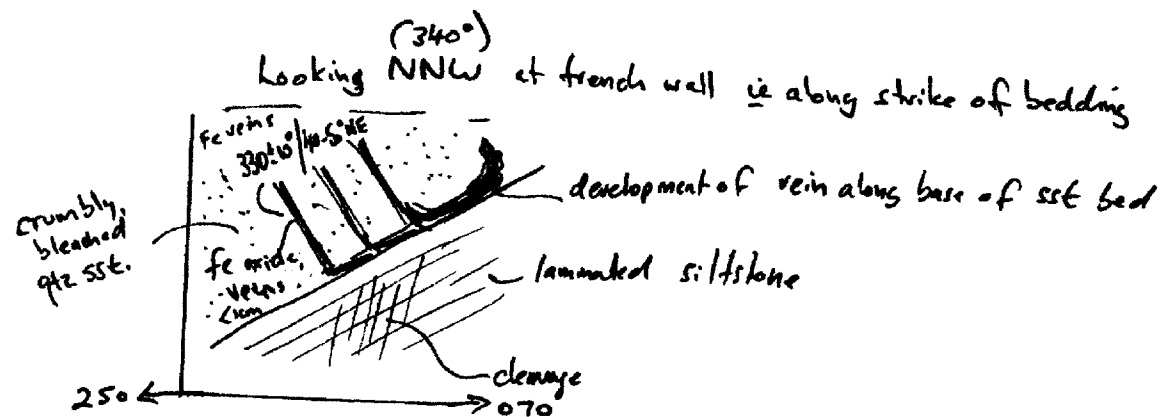 (340°)
Looking NNW at trench wall ie along strike of bedding
Fe veins
330±10°/40-50°NE
development of vein along base of sst bed
crumbly,
bleached
qtz sst.
fe oxide,
veins
<1cm
laminated siltstone
cleavage
250
070